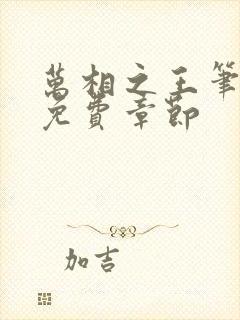 萬相之王筆
免費章節
加吉